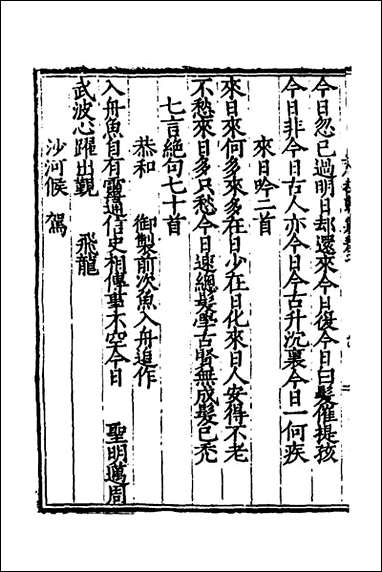 今日忽已過明日却還來今日復今日白髮催提孩
今日非今日古人亦今日今古升沉裏今日一何疾
來日吟二首
來日來何多來多在日少在日化來日人安得不老
不愁來日多只愁今日速總髮學古賢無成髮已禿
七言絕句七十首
恭和 御製前次魚入舟追作
入舟魚自有靈通信史相傳事不空今日 聖明邁周
武波心躍出覲 飛龍
沙河候 駕